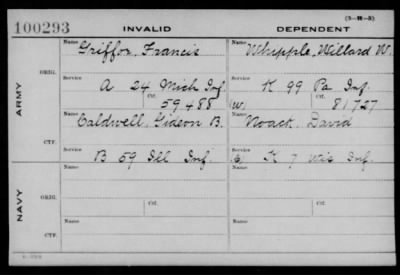 (3-18-5)
100293 INVALID DEPENDENT
ARMY ORIG. Name Griffor, Francis Name Whipple, Willard W.
Service A 24 Mich Inf. Service K 99 Pa Inf.
Ctf. 59488 W. Ctf. 81727
CTF. Name Caldwell, Gideon B. Name Noack, David
Service B 59 Ill Inf. Service K 7 Wis Inf.
NAVY ORIG. Name Name
Ctf. Ctf.
CTF. Name Name